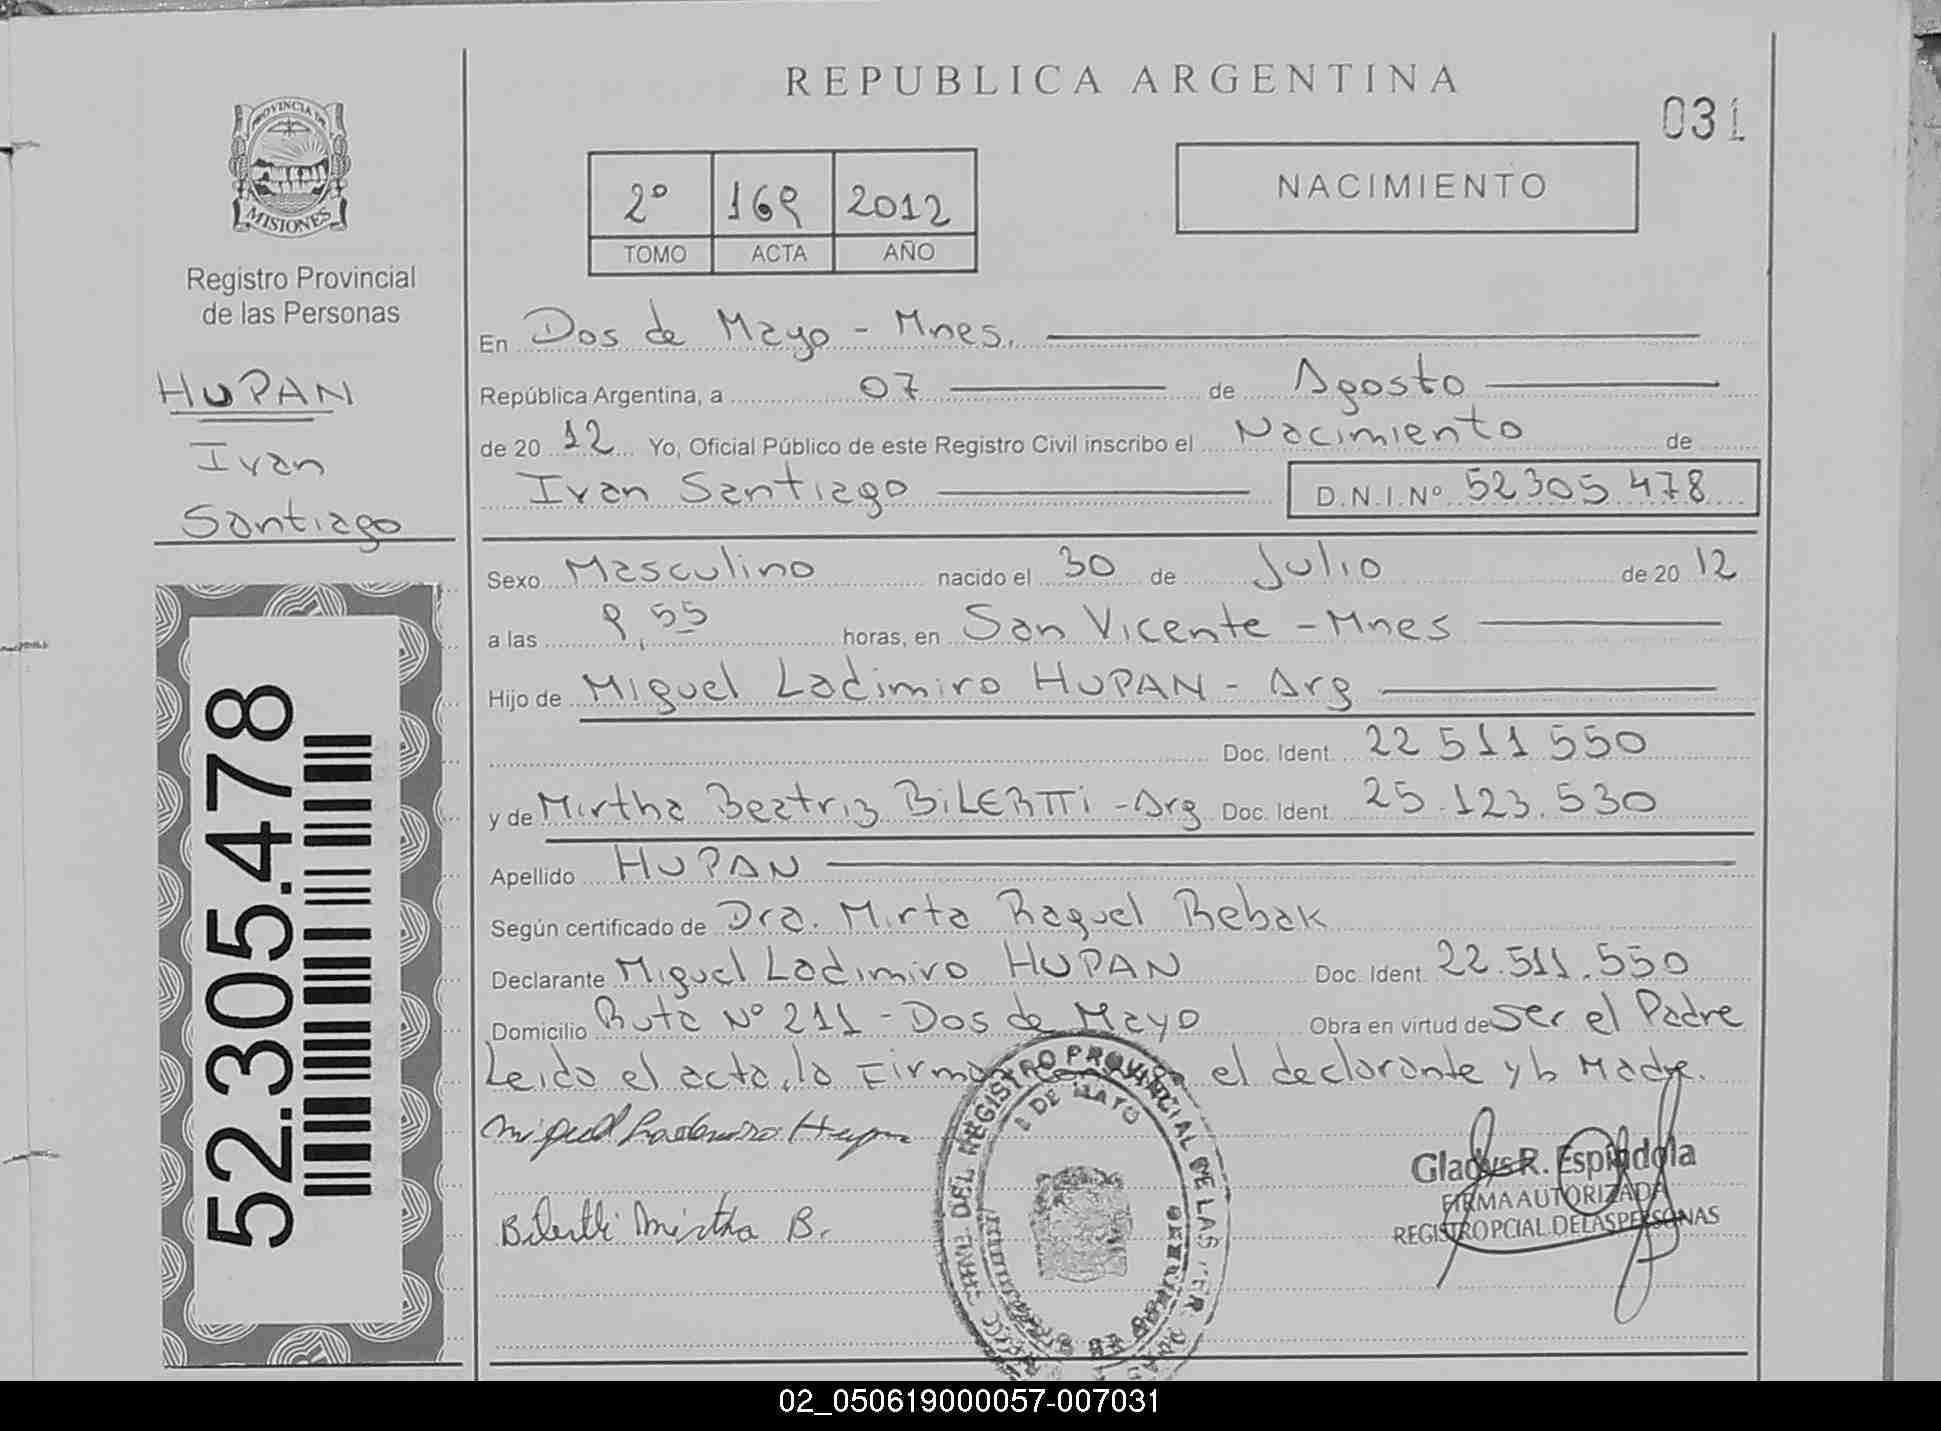 REPUBLICA ARGENTINA
031
PROVINCIA DE
MISIONES
Registro Provincial
de las Personas
2º 169 2012
TOMO ACTA AÑO
NACIMIENTO
HUPAN
Ivan
Santiago
52.305.478
En Dos de Mayo - Mnes.
República Argentina, a 07 de Agosto
de 20 12 Yo, Oficial Público de este Registro Civil inscribo el Nacimiento de
Ivan Santiago D.N.I.Nº 52305.478
Sexo Masculino nacido el 30 de Julio de 20 12
a las 9,55 horas, en San Vicente - Mnes
Hijo de Miguel Ladimiro HUPAN - Arg
Doc. Ident. 22 511 550
y de Mirtha Beatriz BiLERTTi - Arg Doc. Ident. 25.123.530
Apellido HUPAN
Según certificado de Dra. Mirta Raquel Rebak
Declarante Miguel Ladimiro HUPAN Doc. Ident. 22.511.550
Domicilio Ruta Nº 211 - Dos de Mayo Obra en virtud de ser el Padre
Leida el acta, la Firma el declarante y la Madre.
REGISTRO PROVINCIAL DE LAS
DE MAYO
Gladys R. Espindola
FIRMA AUTORIZADA
REGISTRO PCIAL. DE LAS PERSONAS
Bilertti Mirtha B.
02_050619000057-007031